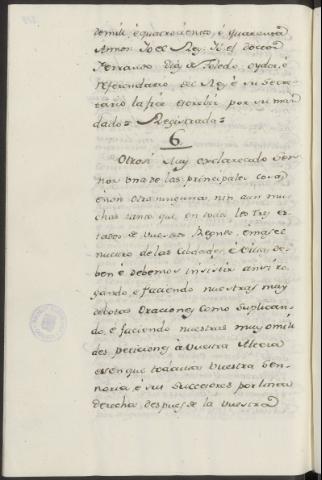 de mill, è quatrocientos, è quarenta
Annos. Yo el Rey. Yo el Doctor
Fernando Diaz de Toledo, oydor, è
referendario del Rey, è su Secre-
tario la fice escribir por su man-
dado = Registrada =
6
Otrosi Muy esclarecido Sen-
nor una de las principales cosas
è non otra ninguna, nin aun mu-
chas tanto que en todos los tres es-
tados de vuestros Regnos, è mas el
nuestro de las Cibdades, è villas de-
ben è debemos insistir ansi ro-
gando, è faciendo nuestras muy
debotas Oraciones, como suplican-
do, è faciendo nuestras muy omil-
des peticiones à vuestra Alteza
es en que todavia vuestra Sen-
noria, è sus subcesores por linea
derecha, despues de la vuestra